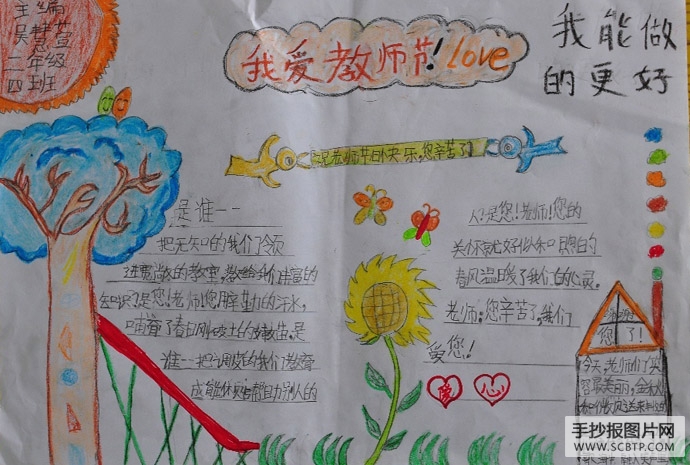 主编
吴慧萱
二年级
四班
我爱教师节!Love
我能做
的更好
祝老师节日快乐,您辛苦了!
是谁——
把无知的我们领
进宽敞的教室,教给我们丰富的
知识?是您!老师!您用辛勤的汗水,
哺育了春日刚破土的嫩苗。是
谁一把调皮的我们教育
成能体贴帮助别人的
人?是您!老师!您的
关怀就好似和煦的
春风温暖了我们的心灵。
老师,您辛苦了,我们
爱您!
爱心
您
了!
今天,老师们的笑
容最美丽,金秋
和
手抄报图片网
WWW.SCBTP.COM